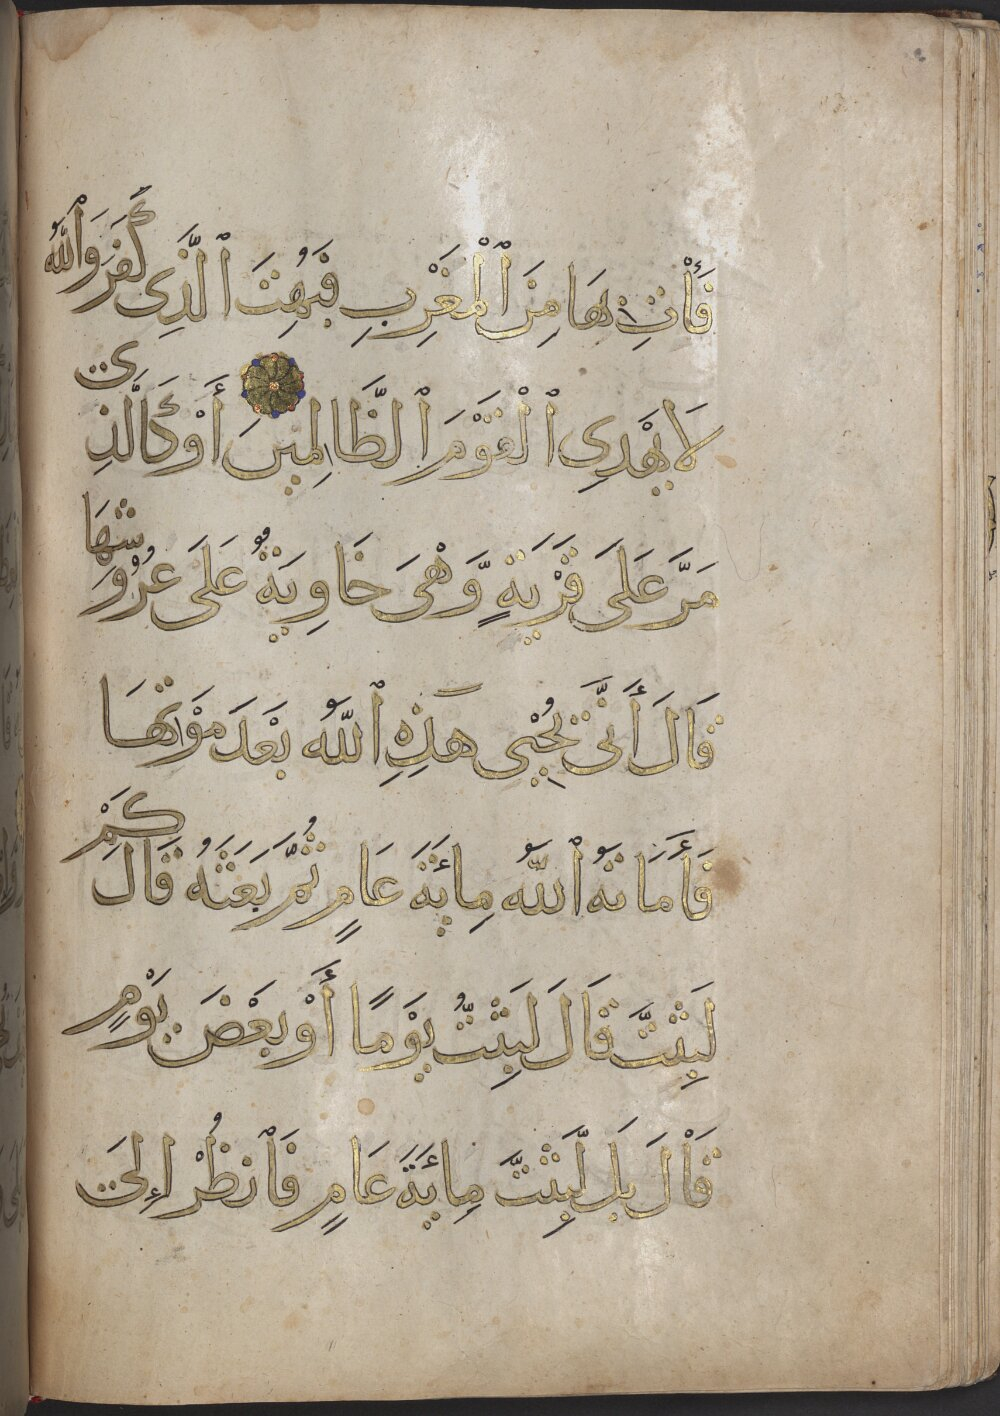 فَأْتِ بِهَا مِنَ ٱلْمَغْرِبِ فَبُهِتَ ٱلَّذِى كَفَرَ وَٱللَّهُ
لَا يَهْدِى ٱلْقَوْمَ ٱلظَّالِمِينَ أَوْ كَٱلَّذِى
مَرَّ عَلَى قَرْيَةٍ وَّهْىَ خَاوِيَةٌ عَلَى عُرُوشِهَا
قَالَ أَنَّى يُحْيِى هَذِهِ ٱللَّهُ بَعْدَ مَوْتِهَا
فَأَمَاتَهُ ٱللَّهُ مِائَةَ عَامٍ ثُمَّ بَعَثَهُ قَالَ كَمْ
لَبِثْتَ قَالَ لَبِثْتُ يَوْمًا أَوْ بَعْضَ يَوْمٍ
قَالَ بَل لَّبِثْتَ مِائَةَ عَامٍ فَٱنظُرْ إِلَى